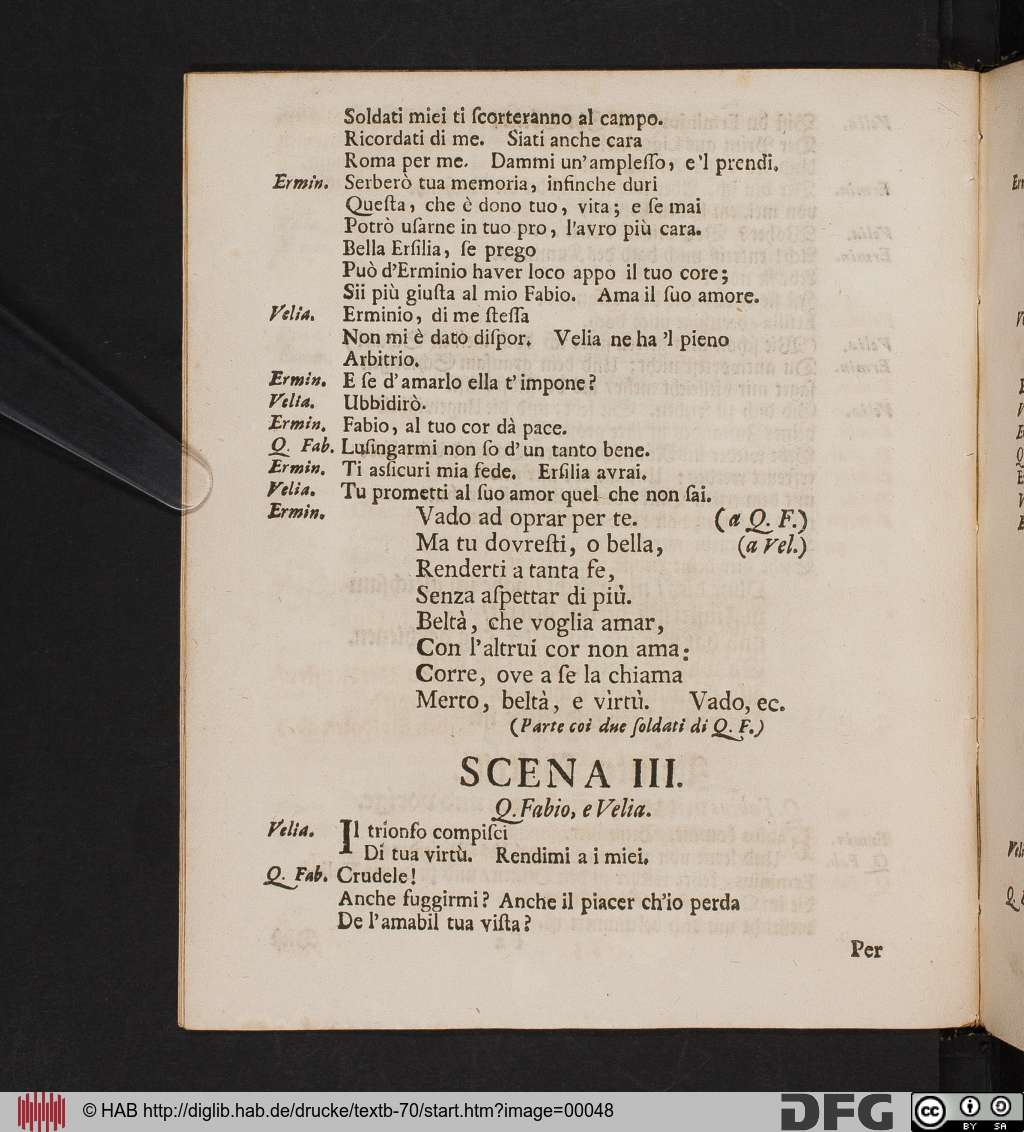 Soldati miei ti ſcorteranno al campo.
Ricordati di me. Siati anche cara
Roma per me. Dammi un'ampleſſo, e 'l prendi.
Ermin. Serberò tua memoria, infinche duri
Queſta, che è dono tuo, vita; e ſe mai
Potrò uſarne in tuo pro, l'avro più cara.
Bella Erſilia, ſe prego
Può d'Erminio haver loco appo il tuo core;
Sii più giuſta al mio Fabio. Ama il ſuo amore.
Velia. Erminio, di me ſteſſa
Non mi è dato diſpor. Velia ne ha 'l pieno
Arbitrio.
Ermin. E ſe d'amarlo ella t'impone?
Velia. Ubbidirò.
Ermin. Fabio, al tuo cor dà pace.
Q. Fab. Luſingarmi non ſo d'un tanto bene.
Ermin. Ti asſicuri mia fede. Erſilia avrai.
Velia. Tu prometti al ſuo amor quel che non ſai.
Ermin. Vado ad oprar per te. (a Q. F.)
Ma tu dovreſti, o bella, (a Vel.)
Renderti a tanta fe,
Senza aſpettar di più.
Beltà, che voglia amar,
Con l'altrui cor non ama:
Corre, ove a ſe la chiama
Merto, beltà, e virtù. Vado, ec.
(Parte coi due ſoldati di Q. F.)
SCENA III.
Q. Fabio, e Velia.
Velia. Il trionfo compiſci
Di tua virtù. Rendimi a i miei.
Q. Fab. Crudele!
Anche fuggirmi? Anche il piacer ch'io perda
De l'amabil tua viſta?
Per
© HAB http://diglib.hab.de/drucke/textb-70/start.htm?image=00048
DFG
cc BY SA